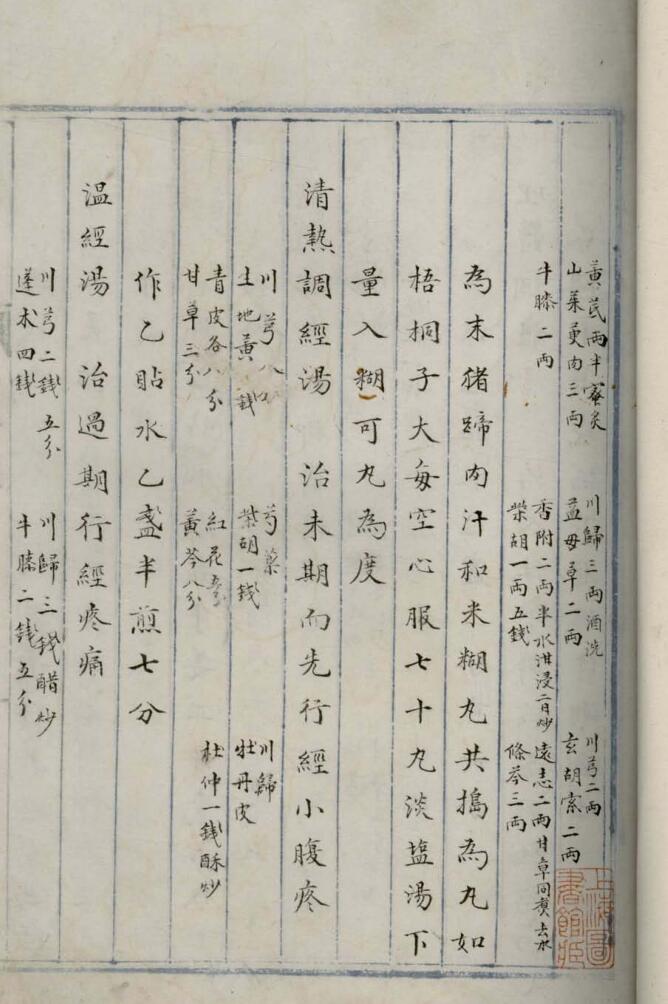 黃芪兩半蜜炙 川歸三兩酒洗 川芎二兩
山茱萸肉三兩 益母草二兩 玄胡索二兩
牛膝二兩 香附二兩半水泔浸二日炒 遠志二兩甘草同煑去水
柴胡一兩五錢 條芩三兩
為末猪蹄肉汁和米糊丸共搗為丸如
梧桐子大每空心服七十丸淡塩湯下
量入糊可丸為度
清熱調經湯 治未期而先行經小腹疼
川芎八分 芍藥 川歸
土地黃錢 柴胡一錢 牡丹皮
青皮各八分 紅花 杜仲一錢酥炒
甘草三分 黃芩八分
作乙貼水乙盞半煎七分
溫經湯 治過期行經疼痛
川芎二錢五分 川歸三錢醋炒
蓬朮四錢 牛膝二錢五分
上海圖書館藏